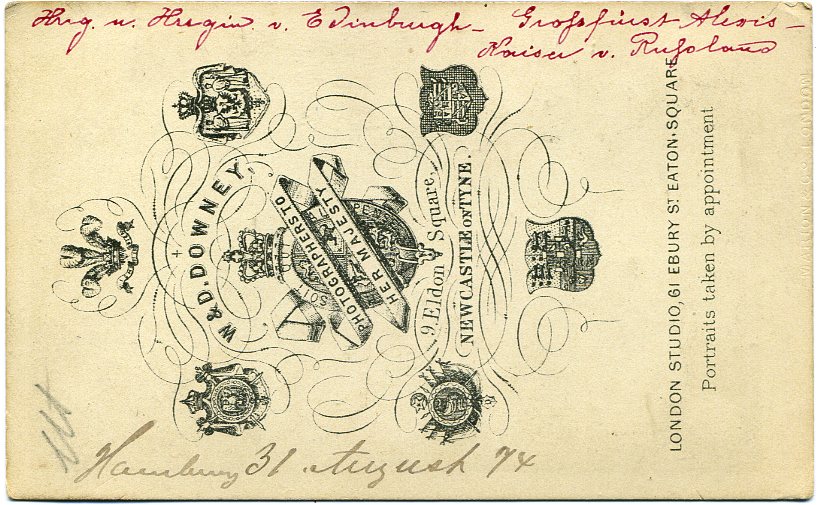 Hrzg. u. Hrzgin v. Edinburgh - Großfürst-Alexis -
Kaiser v. Rußland
W & D. DOWNEY,
PHOTOGRAPHERS TO
HER MAJESTY
9, Eldon Square,
NEWCASTLE ON TYNE.
LONDON STUDIO, 61 EBURY ST EATON-SQUARE
Portraits taken by appointment
Hamburg 31 August 74